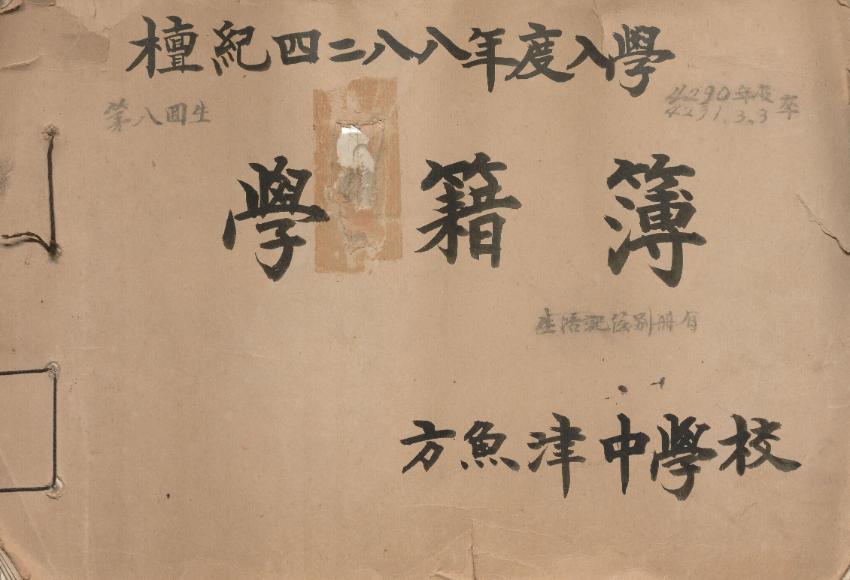 檀紀四二八八年度入學
第八回生
4290年度卒
4291.3.3
學籍簿
生活記錄別冊有
方魚津中學校